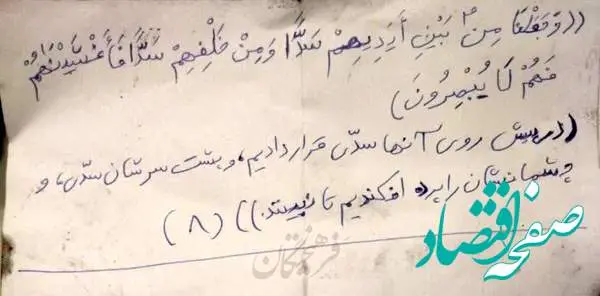 ((وَجَعَلْنَا مِنْ بَيْنِ أَيْدِيهِمْ سَدًّا وَمِنْ خَلْفِهِمْ سَدًّا فَأَغْشَيْنَاهُمْ
فَهُمْ لَا يُبْصِرُونَ)
((در پیش روی آنها سدّی قرار دادیم، و پشت سرشان سدّی، و
چشمانشان را پرده افکندیم تا نبینند.)) (۸)
صفحه اقتصاد
فرهیختگان